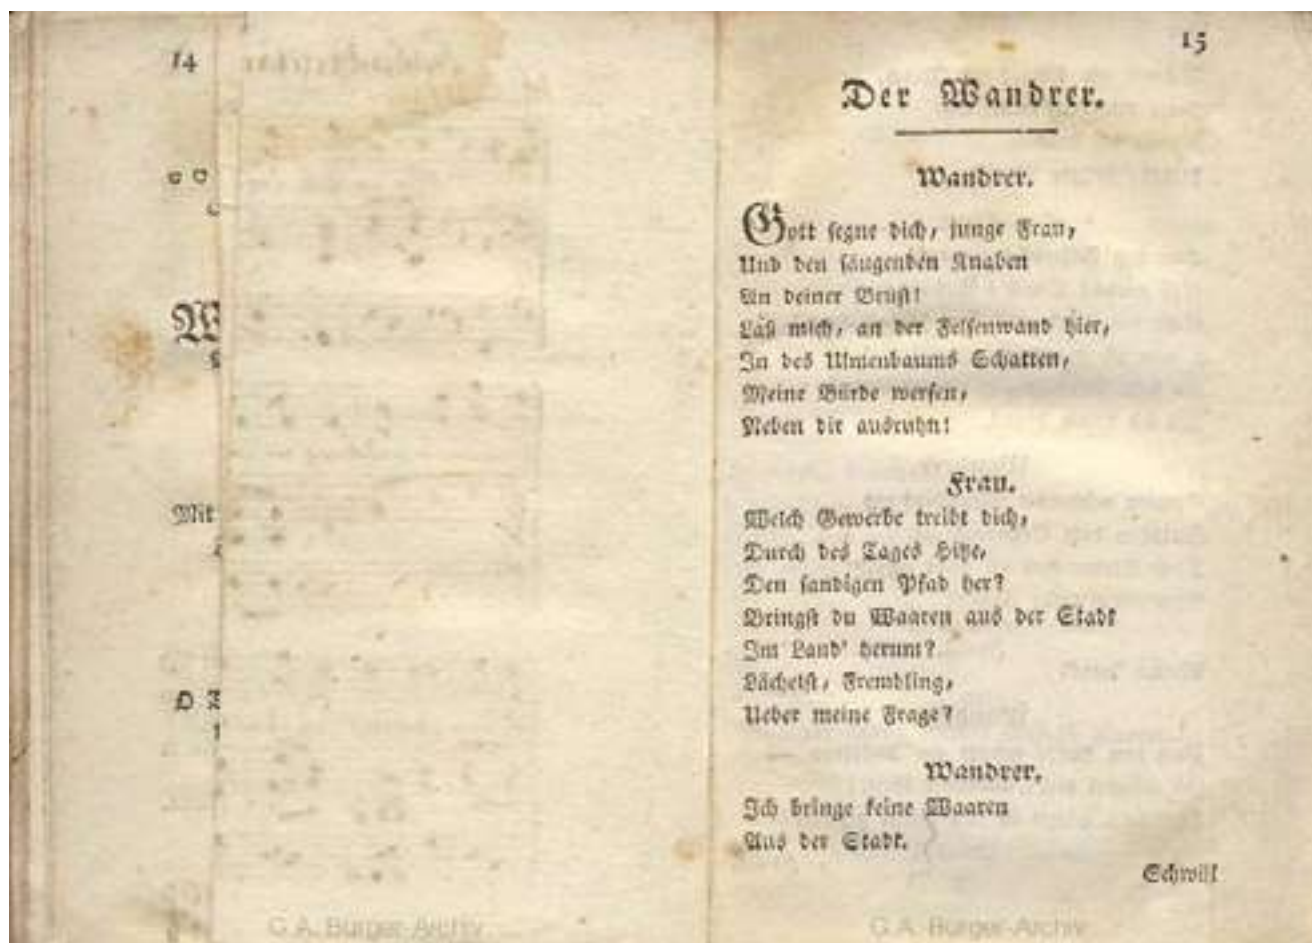 14
W
Mit
15
Der Wandrer.
Wandrer.
Gott segne dich, junge Frau,
Und den säugenden Knaben
An deiner Brust!
Laß mich, an der Felsenwand hier,
In des Ulmenbaums Schatten,
Meine Bürde werfen,
Neben dir ausruhn!
Frau.
Welch Gewerbe treibt dich,
Durch des Tages Hitze,
Den sandigen Pfad her?
Bringst du Waaren aus der Stadt
Im Land' herum?
Lächelst, Fremdling,
Ueber meine Frage?
Wandrer.
Ich bringe keine Waaren
Aus der Stadt.
Schwül
G.A. Bürger-Archiv
G.A. Bürger-Archiv